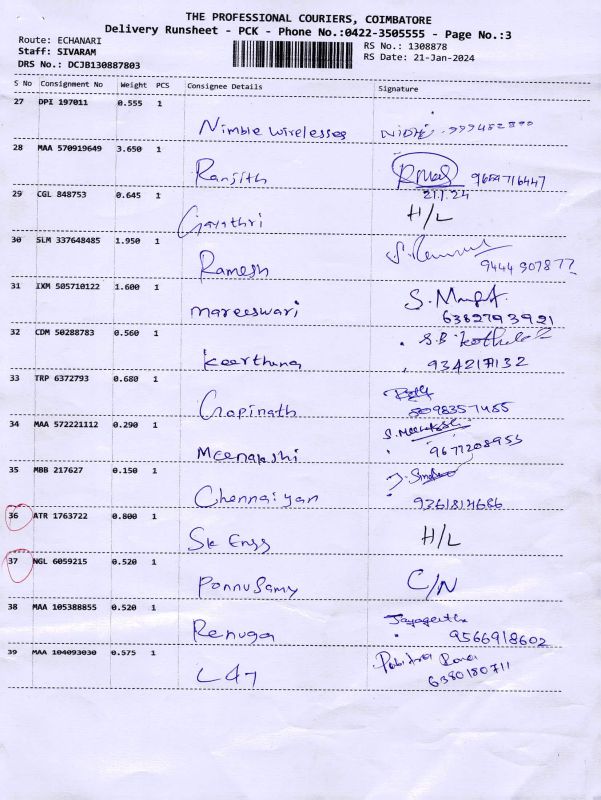 THE PROFESSIONAL COURIERS, COIMBATORE
Delivery Runsheet - PCK - Phone No.:0422-3505555 - Page No.:3
Route: ECHANARI
Staff: SIVARAM
DRS No.: DCJB130887803
RS No.: 1308878
RS Date: 21-Jan-2024
S No Consignment No Weight PCS Consignee Details Signature
27 DPI 197011 0.555 1
Nimble wirelesses
28 MAA 570919649 3.650 1
Ranjith
21.1.24
29 CGL 848753 0.645 1
Gayathri H/L
30 SLM 337648485 1.950 1
Ramesh
31 IXM 505710122 1.600 1
mareeswari
6382793921
32 CDM 50288783 0.560 1
keerthana 934217132
33 TRP 6372793 0.680 1
Gopinath 8098357455
34 MAA 572221112 0.290 1
Meenakshi 9677208955
35 MBB 217627 0.150 1
Chennaiyan
36 ATR 1763722 0.800 1
Sk Engg H/L
37 NGL 6059215 0.520 1
Ponnusamy C/N
38 MAA 105388855 0.520 1
Renuga 9566918602
39 MAA 104093030 0.575 1
L&T
6380180711